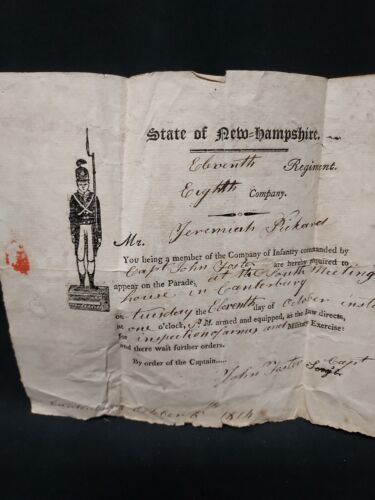 State of New-Hampshire.
Eleventh Regiment.
Eighth Company.
Mr. Jeremiah Pickard
You being a member of the Company of Infantry commanded by
Capt John Foster are hereby required to
appear on the Parade, at the South Meeting
house in Canterbury
on Tuesday the Eleventh day of October inst
at one o'clock, P. M. armed and equipped, as the law directs,
for inspection of arms and Military Exercise:
and there wait further orders.
By order of the Captain.....
John Foster Capt
1814